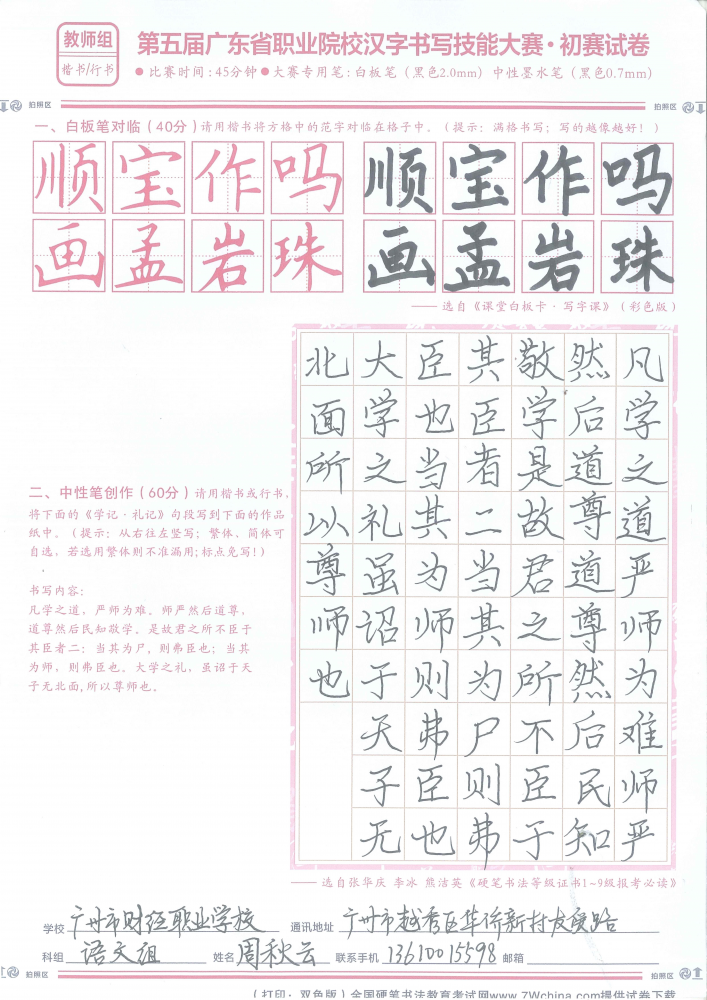 教师组
楷书/行书
第五届广东省职业院校汉字书写技能大赛·初赛试卷
●比赛时间:45分钟●大赛专用笔:白板笔（黑色2.0mm）中性墨水笔（黑色0.7mm）
拍照区
拍照区
一、白板笔对临（40分）请用楷书将方格中的范字对临在格子中。（提示：满格书写；写的越像越好！）
顺宝作吗
顺宝作吗
画孟岩珠
画孟岩珠
——选自《课堂白板卡·写字课》（彩色版）
二、中性笔创作（60分）请用楷书或行书，
将下面的《学记·礼记》句段写到下面的作品
纸中。（提示：从右往左竖写；繁体、简体可
自选，若选用繁体则不准漏用;标点免写!）
书写内容:
凡学之道，严师为难。师严然后道尊，
道尊然后民知敬学。是故君之所不臣于
其臣者二：当其为尸，则弗臣也；当其
为师，则弗臣也。大学之礼，虽诏于天
子无北面,所以尊师也。
凡学之道严师为难师严
然后道尊道尊然后民知
敬学是故君之所不臣于
其臣者二当其为尸则弗
臣也当其为师则弗臣也
大学之礼虽诏于天子无
北面所以尊师也
——选自张华庆 李冰 熊洁英《硬笔书法等级证书1~9级报考必读》
学校 广州市财经职业学校 通讯地址 广州市越秀区华侨新村友爱路
科组 语文组 姓名 周秋云 联系手机 13610015598 邮箱
拍照区
拍照区
（打印：双色版）全国硬笔书法教育考试网www.7Wchina.com提供试卷下载